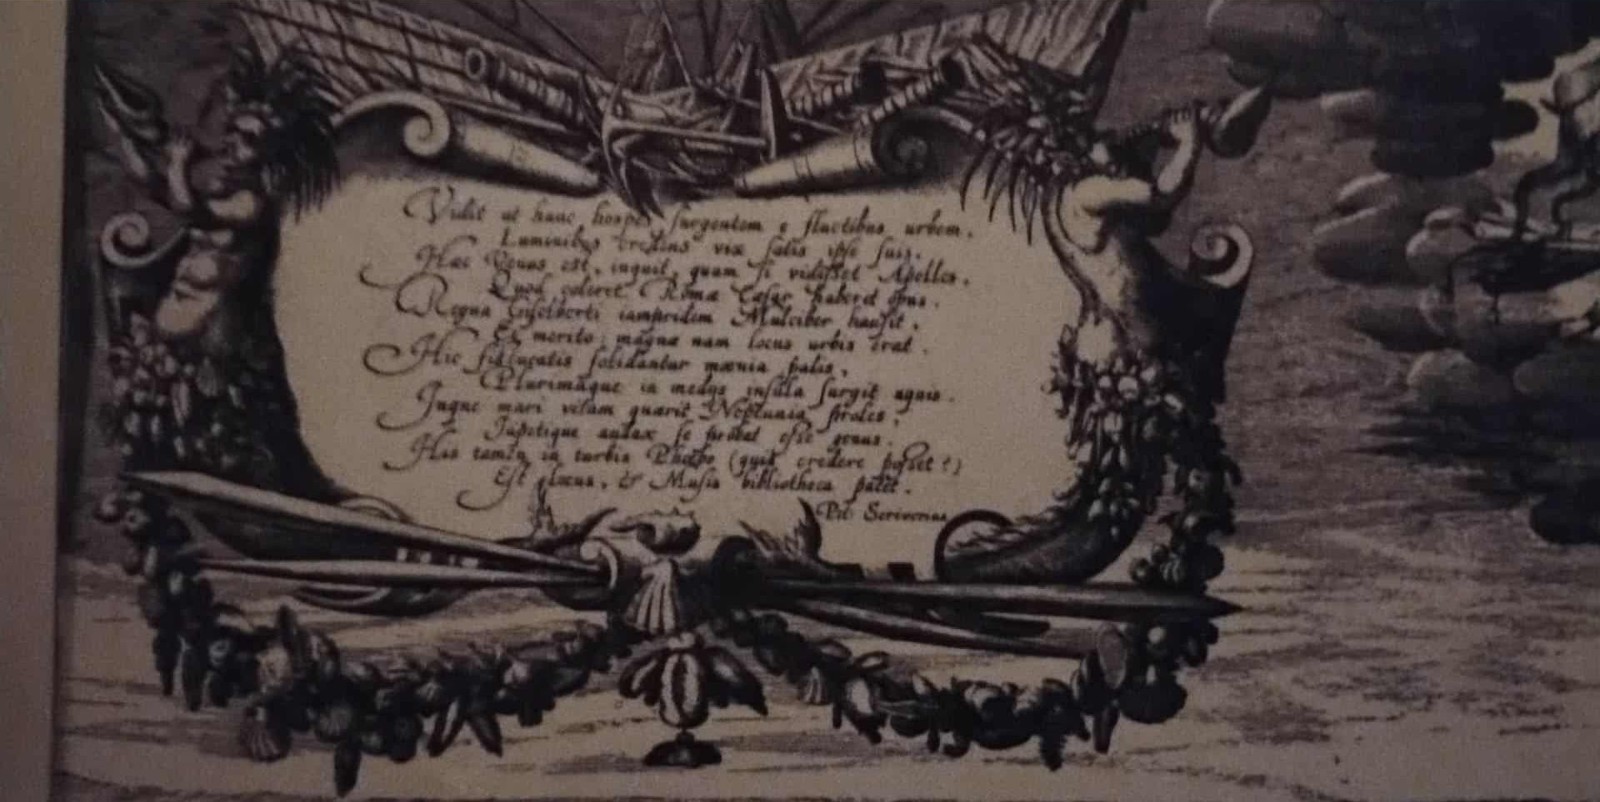 Vidit ut hanc hospes surgentem e fluctibus urbem,
Luminibus credens vix satis ipse suis.
Haec Venus est, inquit, quam si vidisset Apelles,
Quod coleret Romae Caesar haberet opus.
Regna iampridem Mulciber hausit,
Et merito: magnae nam locus urbis erat.
Hic solidantur moenia palis,
Plurimaque in medijs insula surgit aquis.
Juque mari vitam quaerit Neptunia proles,
Japetique audax se probat esse genus.
His tamen in turbis Phoebo (quis credere posset?)
Est locus, & Musis bibliotheca patet.
Pet: Scriverius